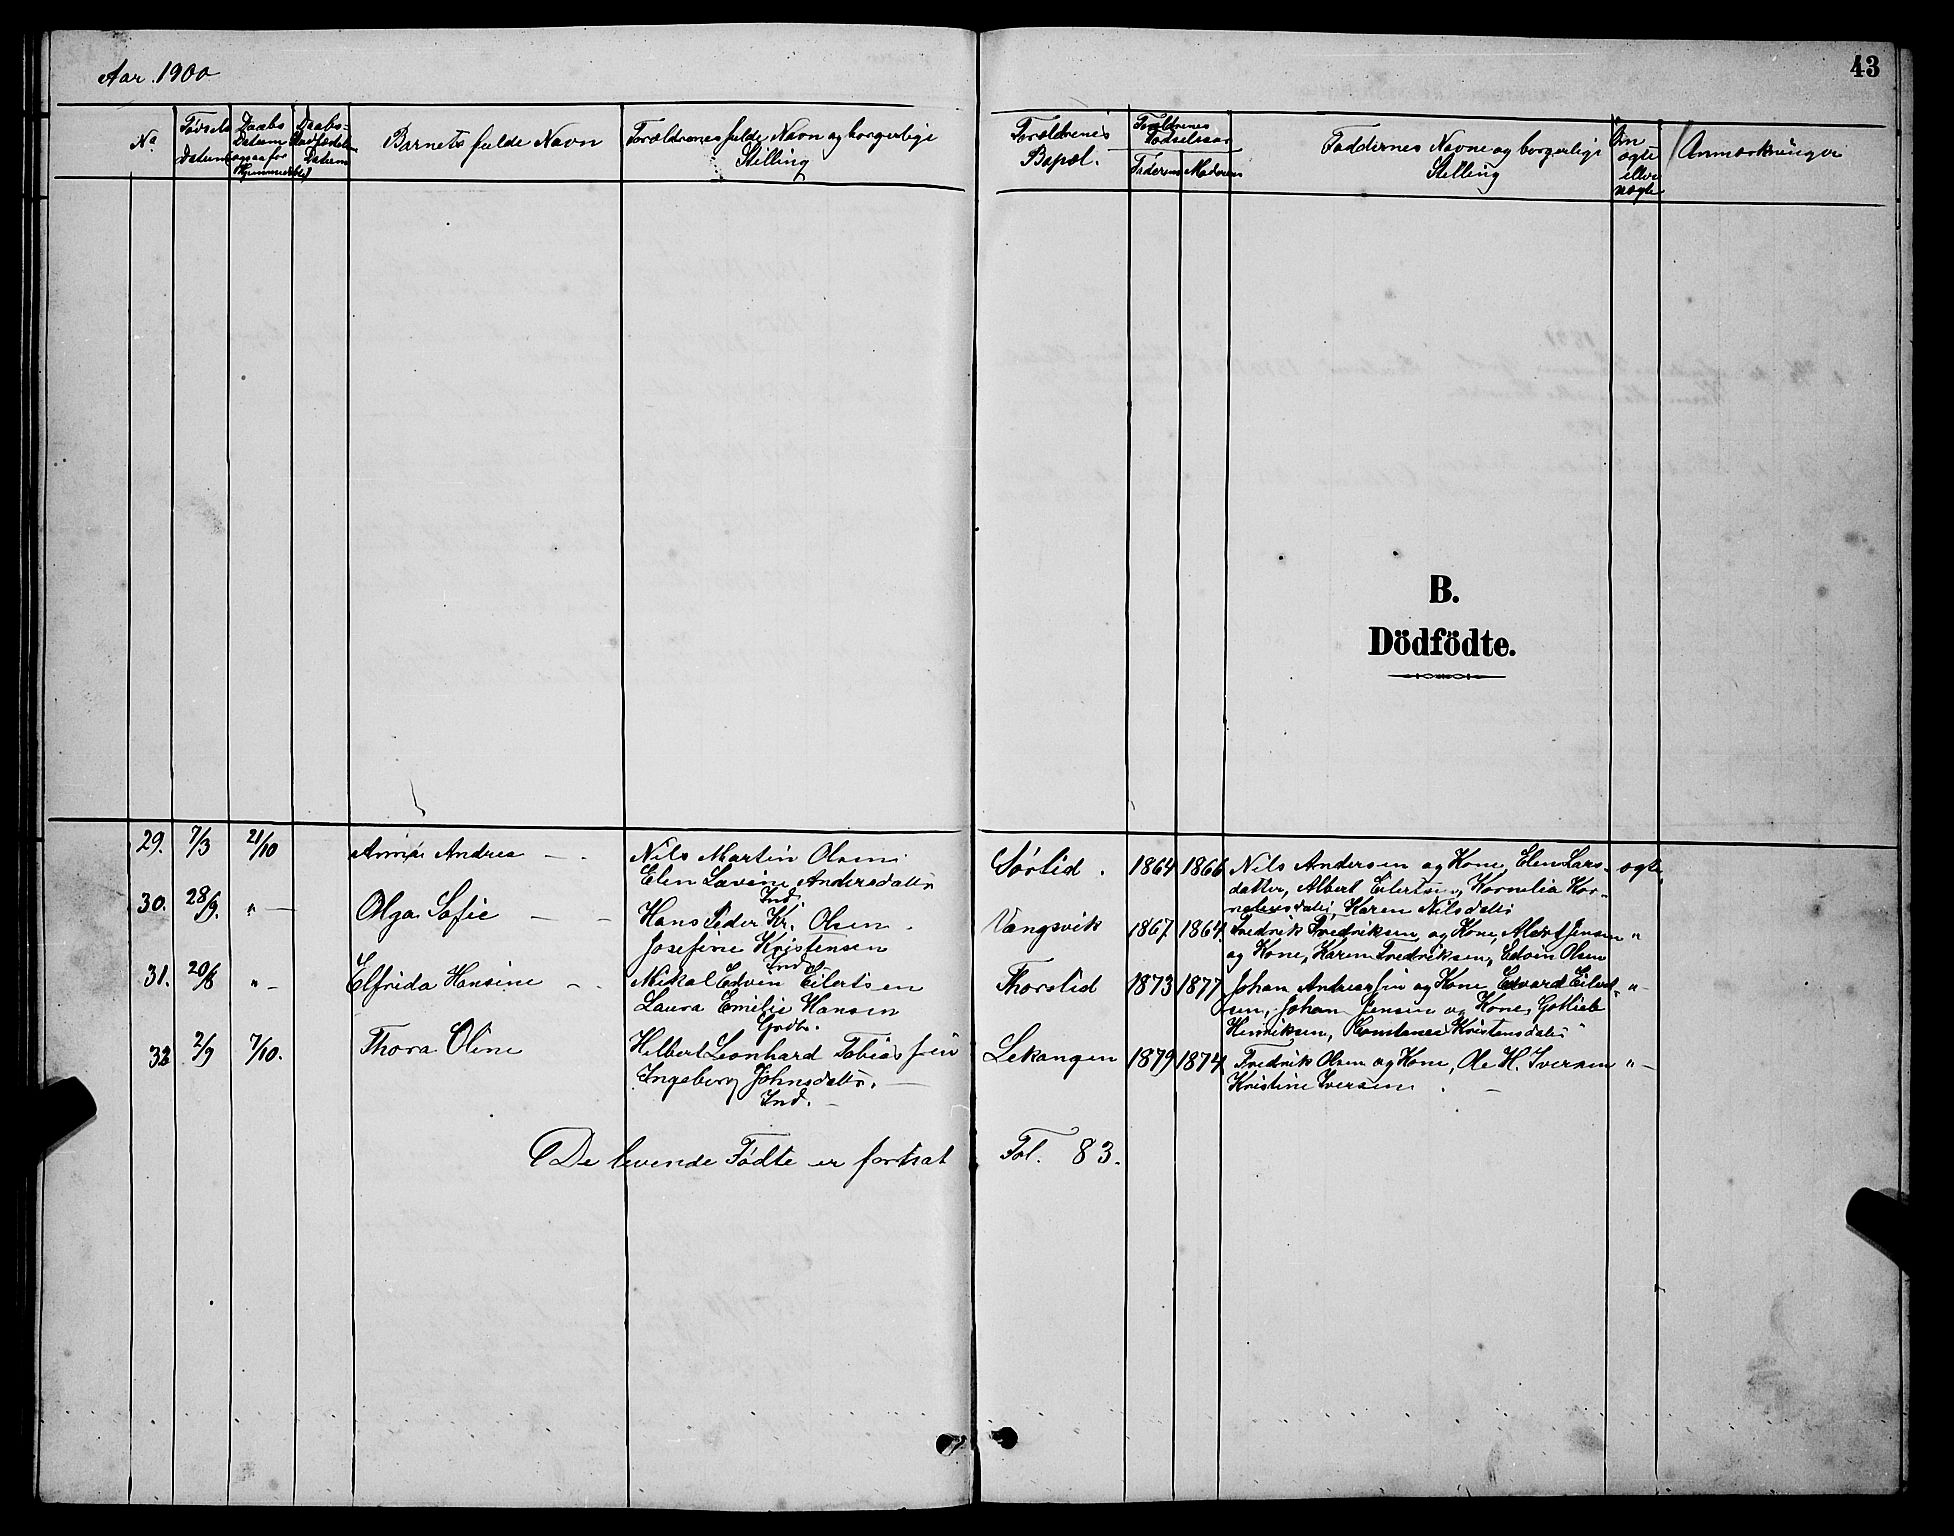 Aar 1900
43
No. Fødsels Datum Daabs Datum ogsaa for Hjemmedøbt Daabs- Datum Barnets fulde Navn Forældrenes fulde Navn og borgerlige Stilling
Forældrenes Bopæl. Forældrenes Fødselsaar Faderens Moderens Faddernes Navne og borgerlige Stilling Om ægte eller uægte Anmærkninger
B.
Dödfödte.
29. 7/3 21/10 Anna Andrea — Nils Martin Olsen Sørlid. 1864 1866 Nils Andersen og Kone, Elen Lars- ægte
Elen Lavine Andersdatter datter, Albert Eilertsen, Kornelia Kor-
Ind. neliusdatter, Karen Nilsdatter
30. 28/9. " — Olga Sofie — Hans Peder Kr. Olsen. Vangsvik 1867 1864 Fredrik Fredriksen og Kone, Jensen "
Josefine Kristensen og Kone, Karen Fredriksen, Edvin Olsen
Ind.
31. 20/8 " — Elfrida Hansine — Mikal Edvin Eilertsen Thorslid 1873 1877 Johan Andreassen og Kone, Edvard Eilert- " -
Laura Emilie Hansen sen, Johan Jensen og Kone, Gotlieb
Grdbr. Henriksen, Konstance Kristensdatter
32 2/9 7/10. Thora Oline Hilbert Leonhard Tobiassen Lekangen 1879 1874 Fredrik Olsen og Kone, Ole H. Iversen " -
Ingeborg Johnsdatter. — Kristine Iversen. —
Ind. —
De levende Fødte er fortsat Fol. 83.